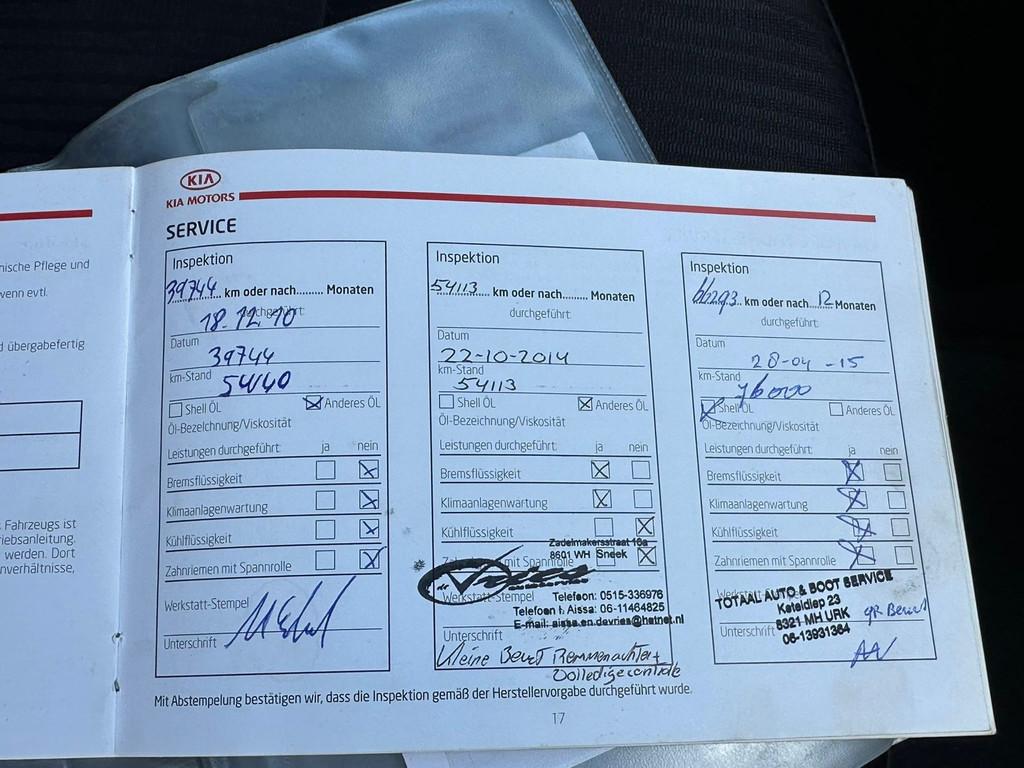 nische Pflege und
wenn evtl.
d übergabefertig
Fahrzeugs ist
riebsanleitung.
werden. Dort
nverhältnisse,
KIA
KIA MOTORS
SERVICE
Inspektion
39744 km oder nach......... Monaten
durchgeführt:
18.12.10
Datum
39744
km-Stand
54140
Shell ÖL Anderes ÖL
Öl-Bezeichnung/Viskosität
Leistungen durchgeführt: ja nein
Bremsflüssigkeit
Klimaanlagenwartung
Kühlflüssigkeit
Zahnriemen mit Spannrolle
Werkstatt-Stempel
Unterschrift
Inspektion
54113 km oder nach......... Monaten
durchgeführt:
Datum
22-10-2014
km-Stand
54113
Shell ÖL Anderes ÖL
Öl-Bezeichnung/Viskosität
Leistungen durchgeführt: ja nein
Bremsflüssigkeit
Klimaanlagenwartung
Kühlflüssigkeit
Zadelmakersstraat 16a
8601 WH Sneek
Zahnriemen mit Spannrolle
Werkstatt-Stempel
Telefoon: 0515-336976
Telefoon t. Aissa: 06-11464825
E-mail: aissa.en.devries@hetnet.nl
Unterschrift
Kleine Beurt Remmen achter +
Volledige controle
Inspektion
66293 km oder nach 12 Monaten
durchgeführt:
Datum
28-04-15
km-Stand
76000
Shell ÖL Anderes ÖL
Öl-Bezeichnung/Viskosität
Leistungen durchgeführt: ja nein
Bremsflüssigkeit
Klimaanlagenwartung
Kühlflüssigkeit
Zahnriemen mit Spannrolle
TOTAAL AUTO & BOOT SERVICE
Keteldiep 23
8321 MH URK
06-13931364
gR Beurt
Unterschrift
Mit Abstempelung bestätigen wir, dass die Inspektion gemäß der Herstellervorgabe durchgeführt wurde.
17